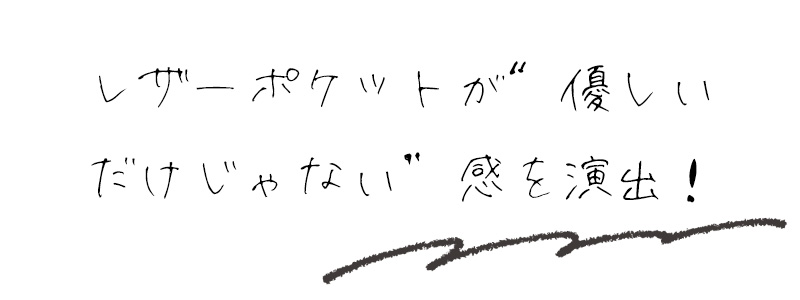 レザーポケットが“優しい
だけじゃない”感を演出！